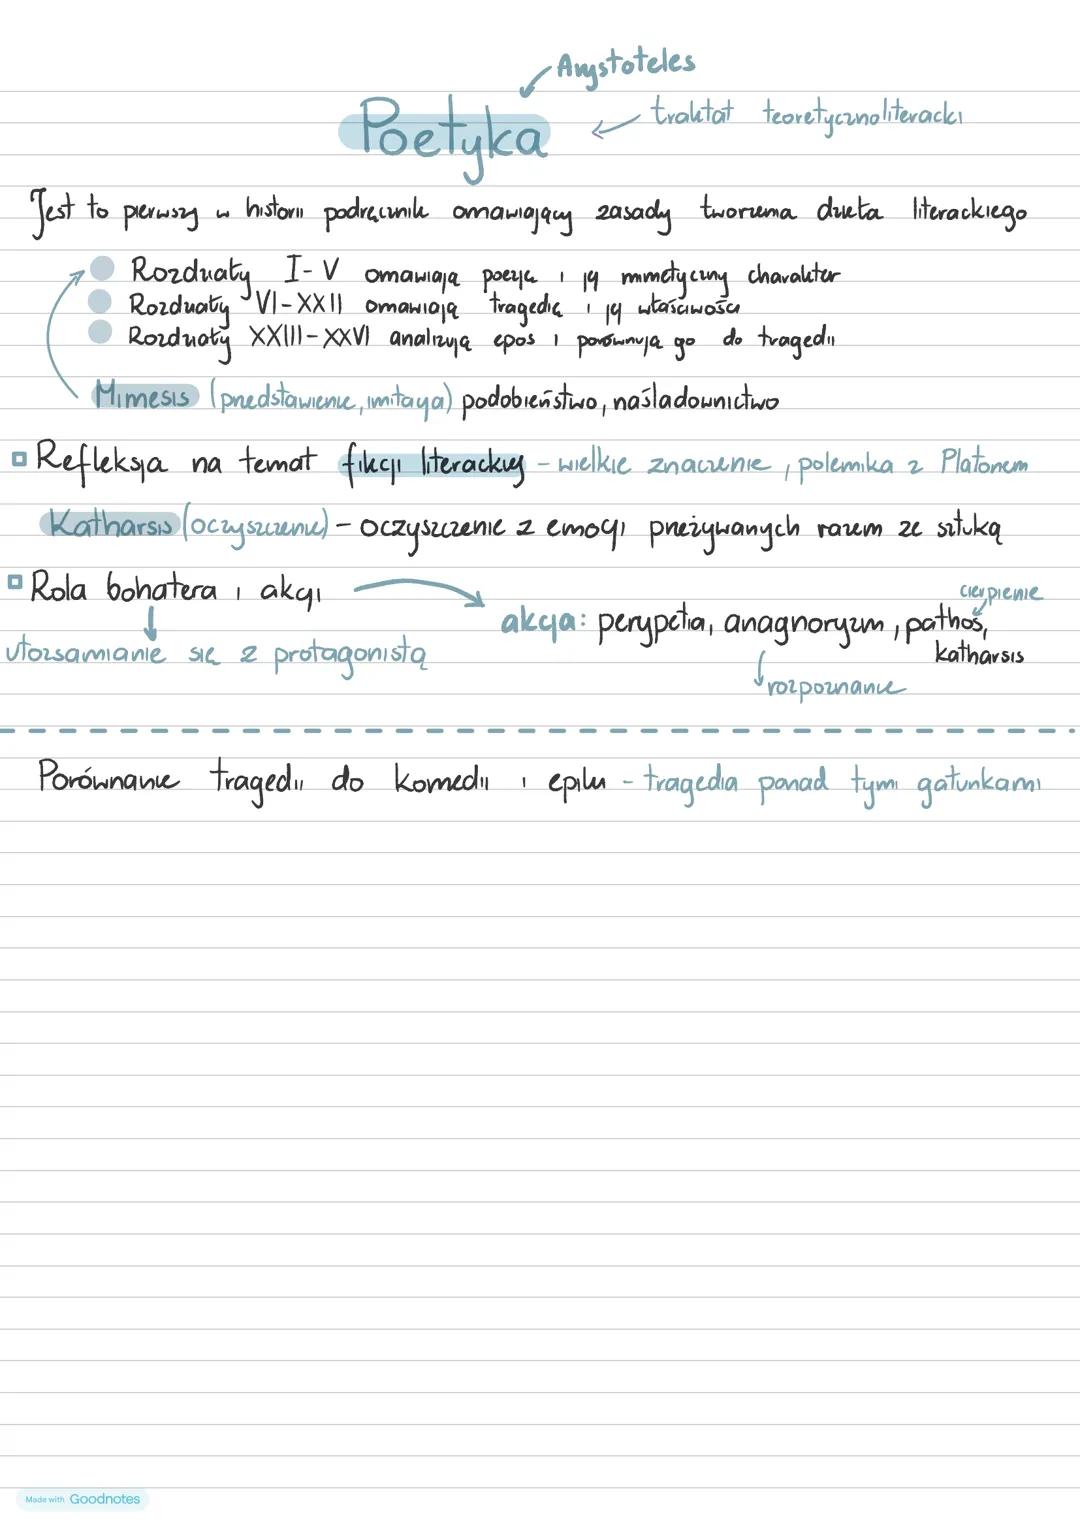 Arystoteles
Poetyka
traktat teoretycznoliteracki
Jest to pierwszy w historii podręcznik omawiający zasady tworzenia dzieła literackiego
Rozdziały I-V omawiają poezję i jej mimetyczny charakter
Rozdziały VI-XXII omawiają tragedię i jej właściwości
Rozdziały XXIII-XXVI analizują epos i porównują go do tragedii
Mimesis (przedstawienie, imitacja) podobieństwo, naśladownictwo
Refleksja na temat fikcji literackiej - wielkie znaczenie, polemika z Platonem
Katharsis (oczyszczenie) - oczyszczenie z emocji przeżywanych razem ze sztuką
Rola bohatera i akcji
cierpienie
akcja: perypetia, anagnoryzm, pathos,
katharsis
utożsamianie się z protagonistą
rozpoznanie
Porównanie tragedii do komedii i epiki - tragedia ponad tymi gatunkami
Made with Goodnotes